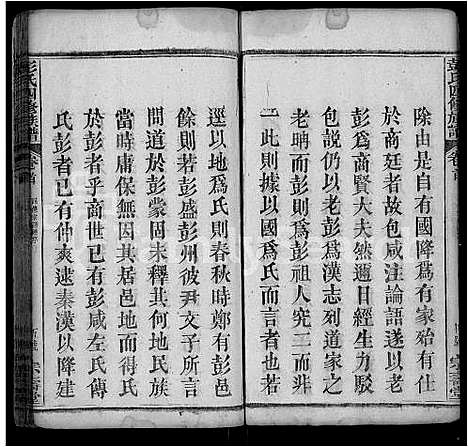 彭氏四修族譜
卷首
除由是有國降爲有家殆有仕
於商廷者故包咸注論語遂以
彭爲商賢大夫然邇日經生力
仍以包說爲彭漢志列道家之
老聃而以爲彭祖人究二而非
一此則據以國爲氏而言者也
逕以地爲氏則春秋時鄭有彭邑
餘則若彭盛彭州彼尹文子所言
問道於彭蒙固未釋其何地民族
當時庸保無因其居邑地而得氏
於彭者乎商世之有彭咸左氏傳
氏彭者已有仲爽逮秦漢以降建
彭氏四修族譜
卷首